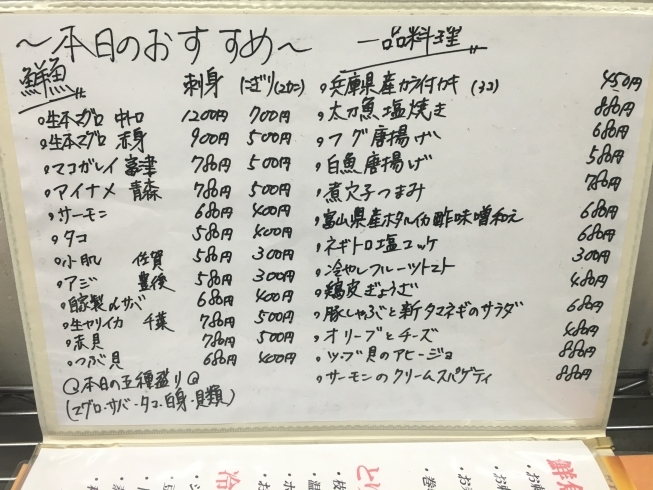 ~本日のおすすめ~
鮮魚 刺身 にぎり(2カン)
生本マグロ 中トロ 1200円 700円
生本マグロ 赤身 900円 500円
マコガレイ 富津 780円 500円
アイナメ 青森 780円 500円
サーモン 680円 400円
タコ 580円 400円
小肌 佐賀 580円 300円
アジ 豊後 580円 300円
自家製〆サバ 680円 400円
生ヤリイカ 千葉 780円 500円
赤貝 780円 500円
つぶ貝 680円 400円
本日の五種盛り
(マグロ・サバ・タコ・白身・貝類)
一品料理
兵庫県産カラ付カキ (3コ) 450円
太刀魚塩焼き 880円
フグ唐揚げ 680円
白魚唐揚げ 580円
煮穴子つまみ 780円
富山県産ホタルイカ酢味噌和え 680円
ネギトロ塩ユッケ 680円
冷やしフルーツトマト 300円
鶏皮ぎょうざ 480円
豚しゃぶと新タマネギのサラダ 680円
オリーブとチーズ 480円
ツブ貝のアヒージョ 880円
サーモンのクリームスパゲティ 880円